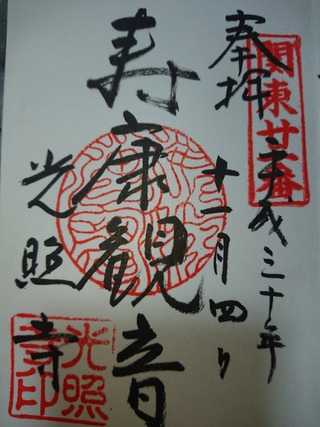 奉拝
関東廿八番
平成三十年
十一月四日
寿康観音
光照寺
光照
寺印